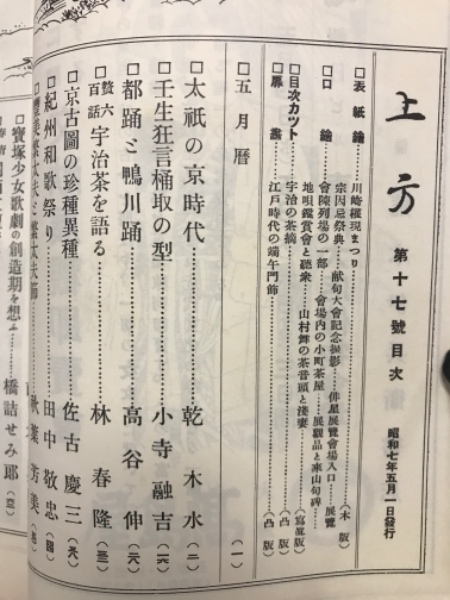 上方 第十七號目次 昭和七年五月一日發行
□表紙繪……川崎權現まつり……(木版)
□口繪……宗因忌祭典……献句大會記念撮影……俳星展覽會場入口……展覽
會陳列場の一部……會場内の小町茶屋……展觀品と來山句碑……
地唄鑑賞會と聽衆……山村舞の茶音頭と淺妻……(寫眞版)
□目次カツト……宇治の茶摘……(凸版)
□扉繪……江戸時代の端午門飾……(凸版)
□五月曆……(一)
□太祇の京時代……乾木水(二)
□壬生狂言桶取の型……小寺融吉(一六)
□都踊と鴨川踊……高谷伸(一六)
□贅六百話 宇治茶を語る……林春隆(三)
□京古圖の珍種異種……佐古慶三(元)
□紀州和歌祭り……田中敬忠
秋葉芳美
□寶塚少女歌劇の創造期を想ふ……橋詰せみ郎